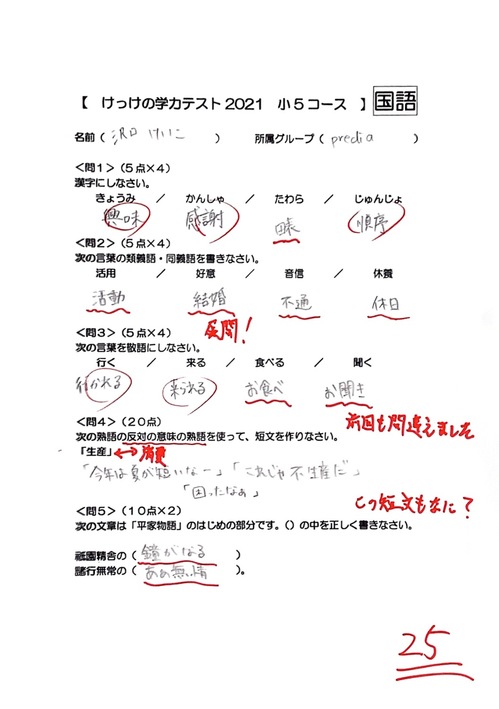 【 けっけの学力テスト2021 小5コース 】国語
名前（ 沢口 けいこ ） 所属グループ（ predia ）
＜問1＞（5点×4）
漢字にしなさい。
きょうみ ／ かんしゃ ／ たわら ／ じゅんじょ
興味 感謝 田表 順序
＜問2＞（5点×4）
次の言葉の類義語・同義語を書きなさい。
活用 ／ 好意 ／ 音信 ／ 休養
活動 結婚 不通 休日
＜問3＞（5点×4） 疑問！
次の言葉を敬語にしなさい。
行く ／ 来る ／ 食べる ／ 聞く
行かれる 来られる お食べ お聞き
＜問4＞（20点） 前回も間違えました
次の熟語の反対の意味の熟語を使って、短文を作りなさい。
「生産」↔消費
「今年は夏が短いなー」「これじゃ不生産だ」
「困ったなぁ」
この短文もなに？
＜問5＞（10点×2）
次の文章は「平家物語」のはじめの部分です。（）の中を正しく書きなさい。
祗園精舎の（ 鐘がなる ）
諸行無常の（ ああ無情 ）。
25